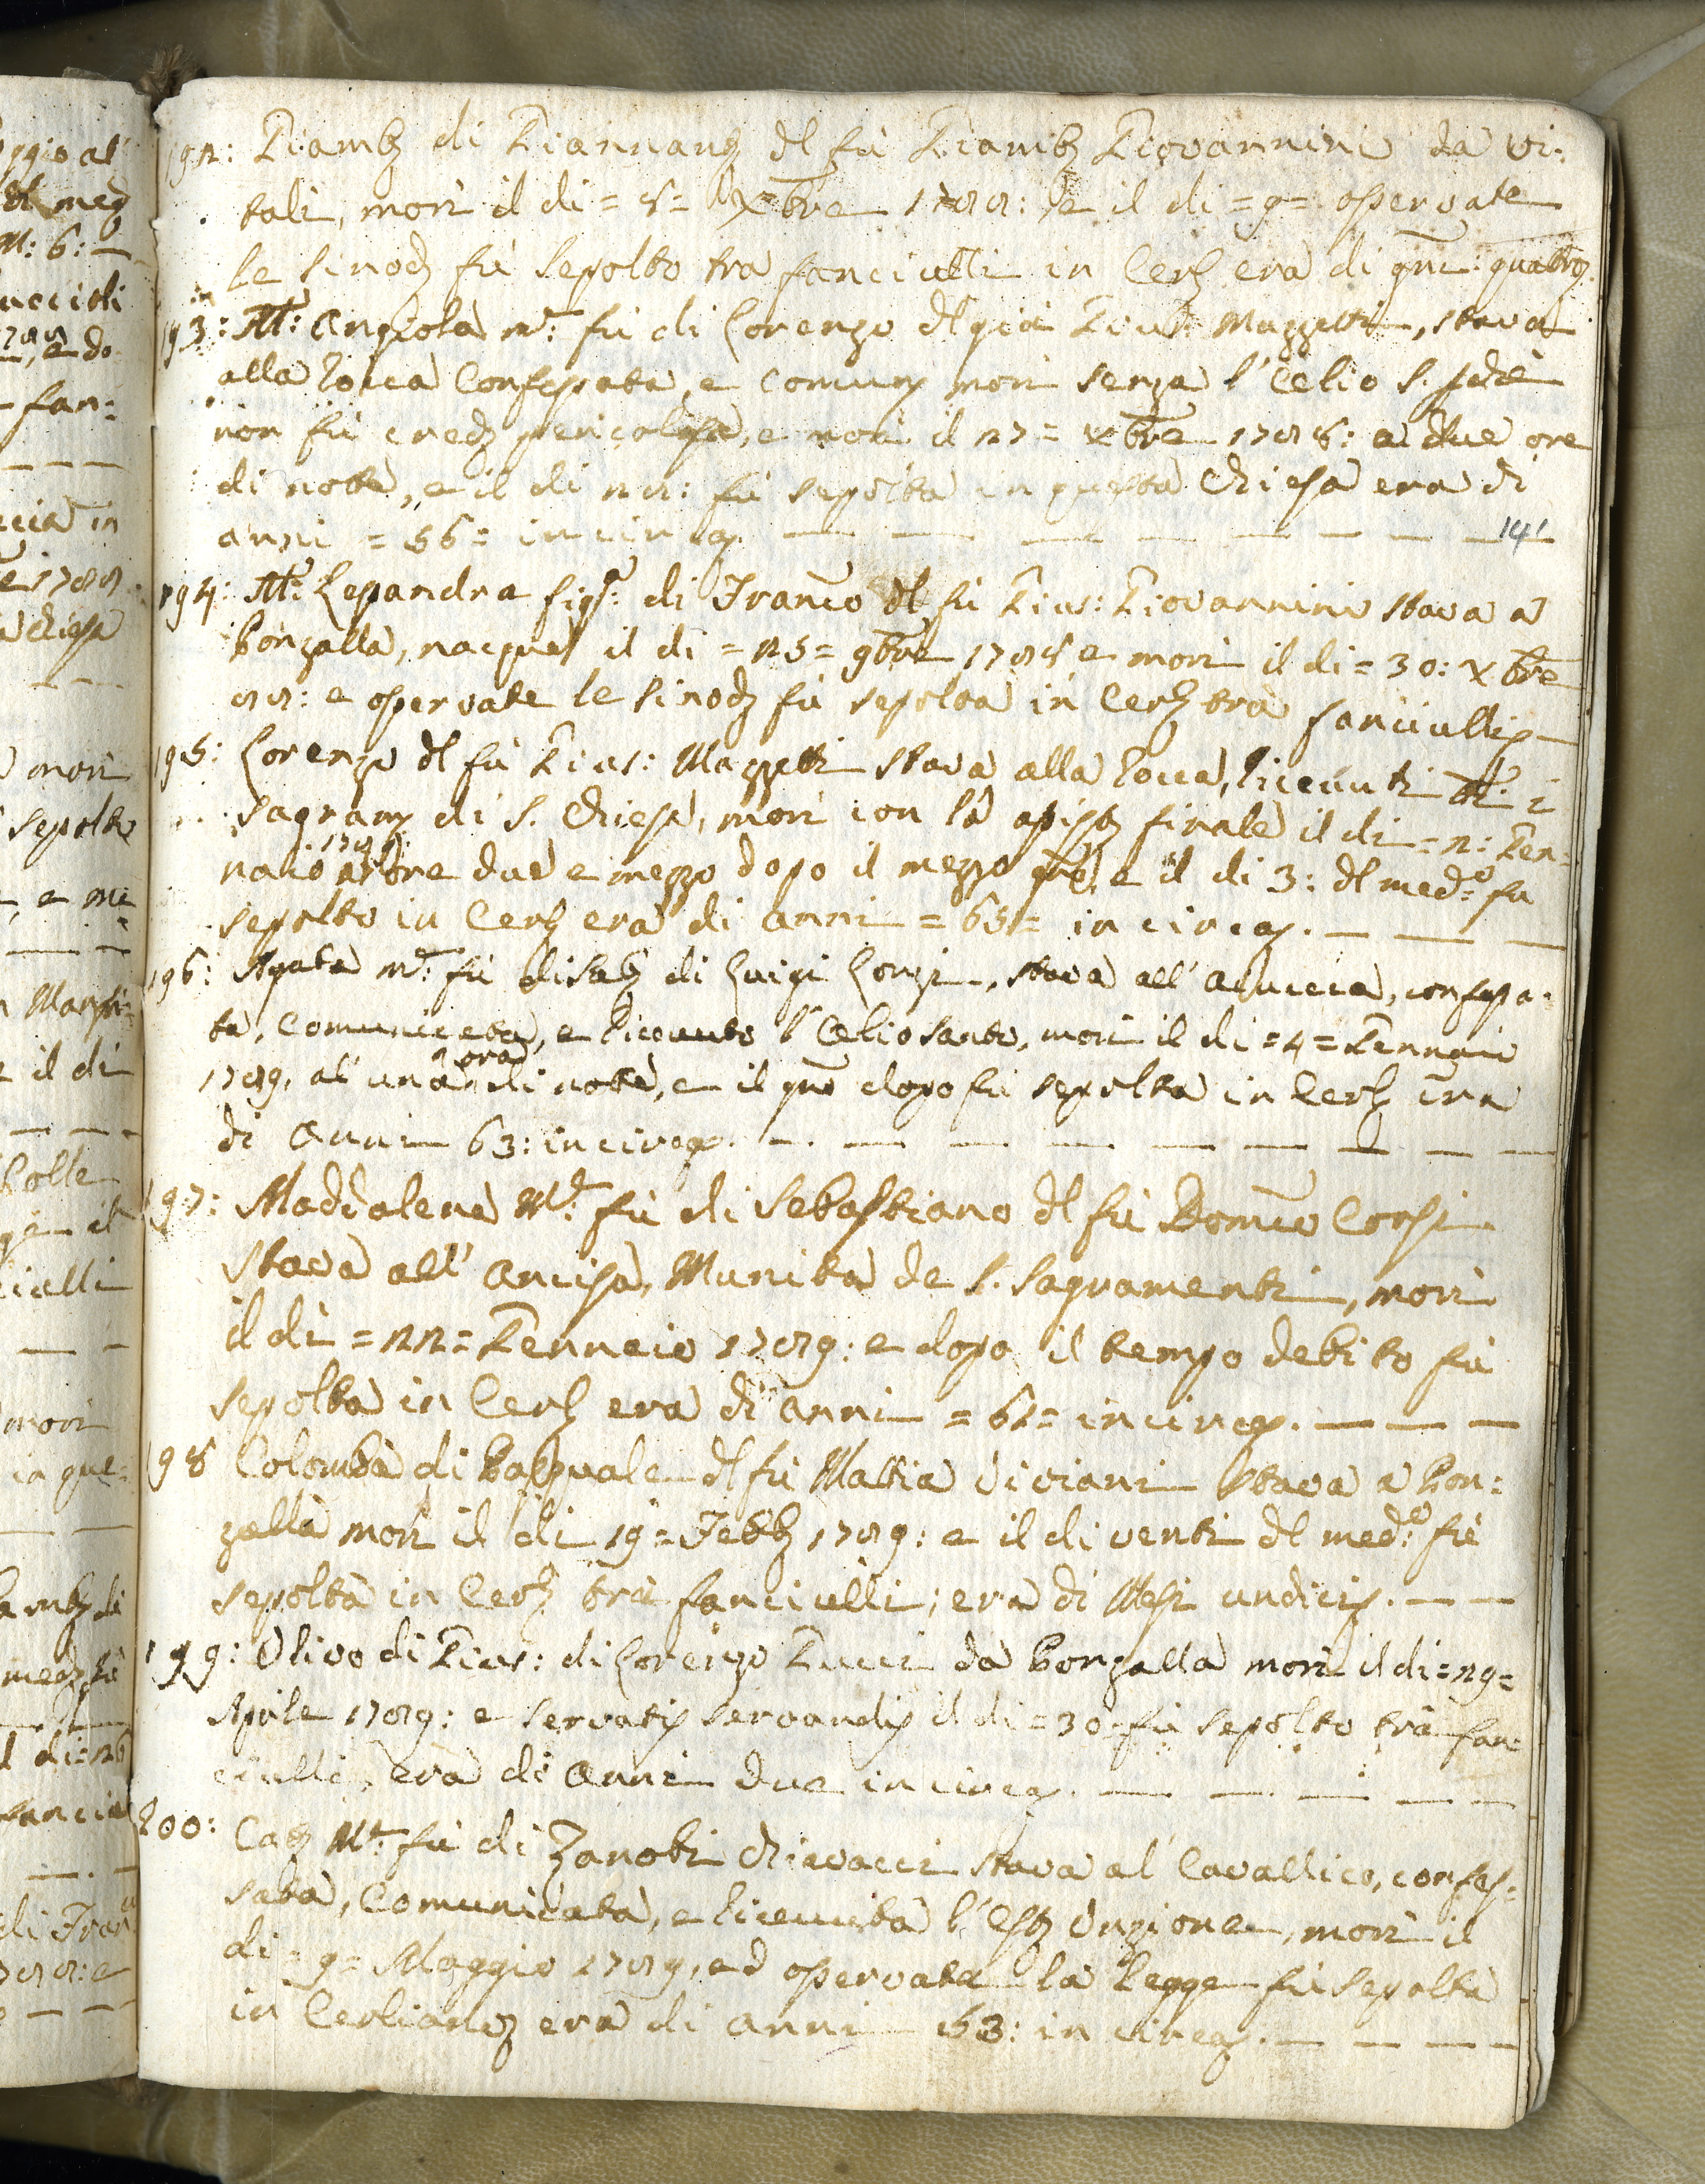 192: Giamb di Giannant dl fù Giamb Giovannini da Vi:
tali, morì il di = 8 = Xbre 1788: e il di = 9 = osservate
le Sinod fù Sepolto tra fanciulli in Cerl era di gni: quattro.
193: Ma: Angiola Me: fù di Lorenzo dl già Gius: Mazzetti, stava
alla Rocca Confessata, e Comun morì senza l'Olio S. pche
non fù cred pericolosa, e morì il 27 = Xbre 1788: a due ore
di notte, e il di 28: fù sepolta in questa Chiesa era di
anni = 56 = in circa.
141
194: Ma: Lessandra figla: di Franco dl fù Gius: Giovannini stava a
Bonzalla, nacque il di = 25 = 9bre 1788 e morì il di = 30: Xbre
88: e osservate le Sinod fù sepolta in Cerl tra fanciulli
195: Lorenzo dl fù Gius: Mazzetti stava alla Rocca, Ricevuti tti: i
Sagram di S. Chiesa, morì con la assist finale il di = 2: Gen=
naio 1789 a ore due e mezzo dopo il mezzo gno, e il di 3: dl medo: fu
sepolto in Cerl era di anni = 65 = in circa.
196: Agata Me: fù di Sab di Luigi Lonzi, stava all' Aiaccia, confessa=
ta, Comunicata, e Ricevuto l'Olio Santo, morì il di = 4 = Gennaio
1789, al' una ora di notte, e il gno dopo fù sepolta in Cerl era
di Anni 63: in circa.
197: Maddalena Me: fù di Sebastiano dl fù Domco Corsi
stava all' Ancisa, Munita de S. Sagramenti, morì
il di = 22 = Gennaio 1789: e dopo il tempo debito fù
sepolta in Cerl era di anni = 62 = in circa.
198 Colomba di Pasquale dl fù Mattia Viviani stava a Bon:
zalla morì il di 19 = Febb 1789: e il di venti dl medo: fù
sepolta in Cerl tra fanciulli; era di Mesi undici.
199: Olivo di Gius: di Lorenzo Gucci da Bonzalla morì il di = 29 =
Aprile 1789: e servatis servandis il di = 30 = fù sepolto tra fan=
ciulli, era di Anni due in circa.
200: Cat Me: fù di Zanobi Chiavacci stava al Cavallico, confes=
sata, Comunicata, e Ricevuta l'Est Unzione, morì il
di = 9 = Maggio 1789, ed osservata la Legge fù sepolta
in Cerliano era di anni 53: in circa.